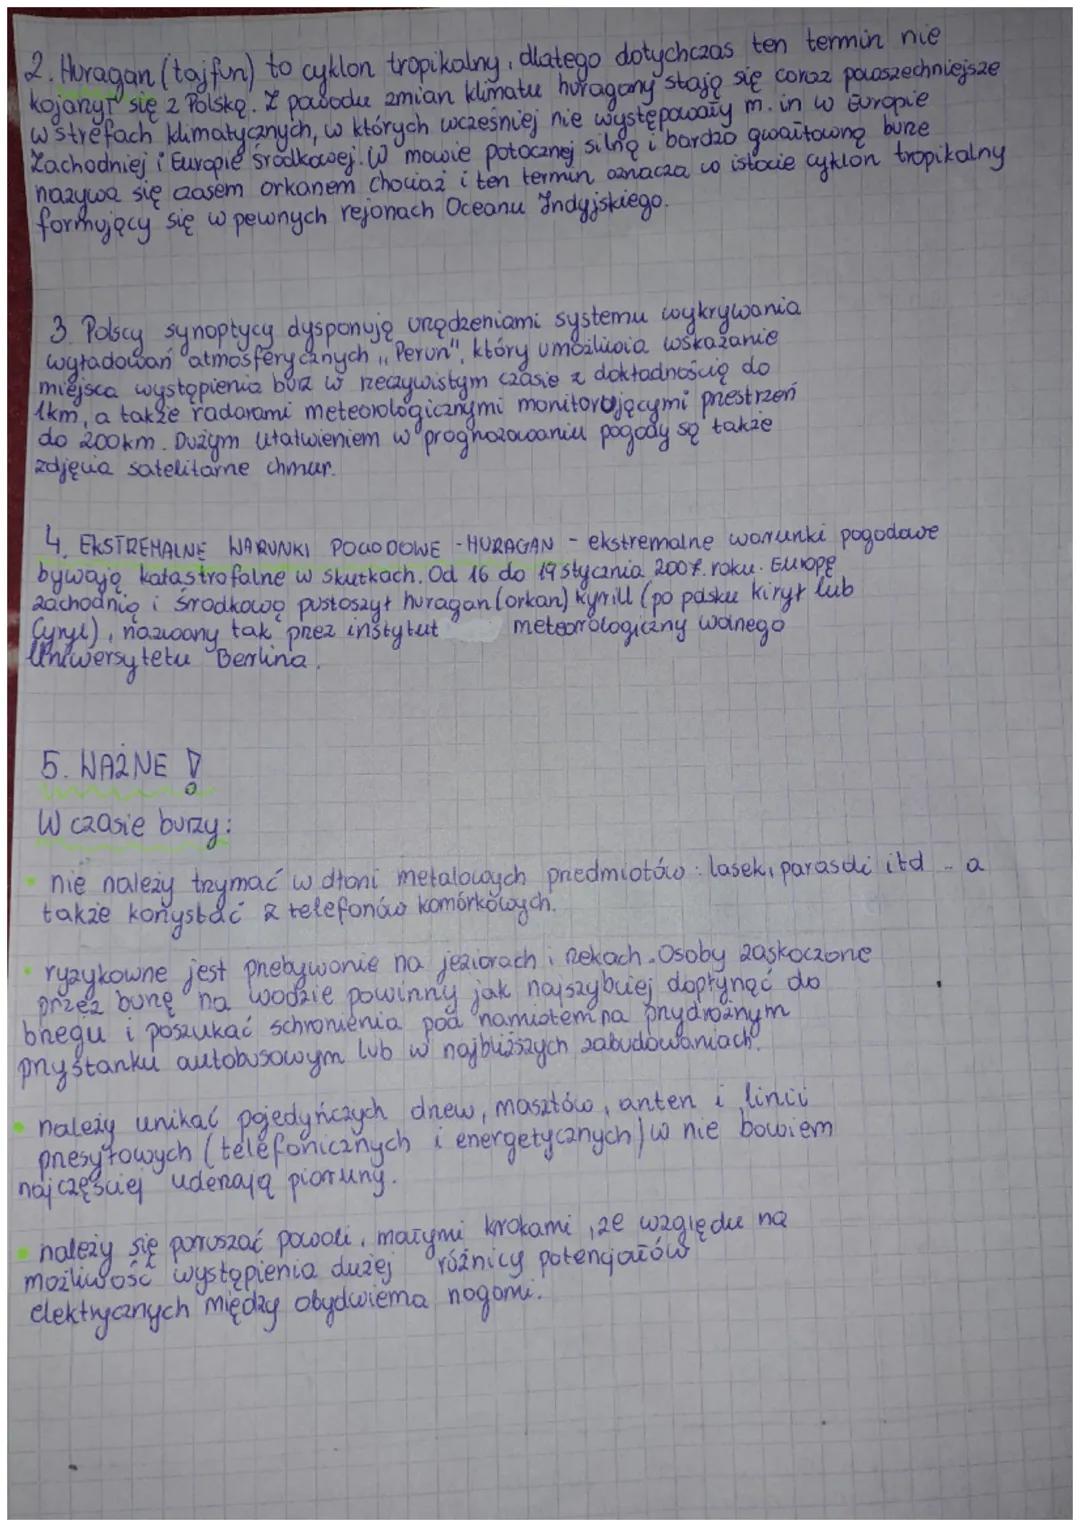 2. Huragan (tajfun) to cyklon tropikalny, dlatego dotychczas ten termin nie
kojarzył się z Polską. Z powodu zmian klimatu huragany stają się coraz powszechniejsze
w strefach klimatycznych, w których wcześniej nie występowały m. in w Europie
Zachodniej i Europie Środkowej. W mowie potocznej silną i bardzo gwałtowną burzę
nazywa się czasem orkanem chociaż i ten termin oznacza w istocie cyklon tropikalny
formujący się w pewnych rejonach Oceanu Indyjskiego.
3. Polscy synoptycy dysponują urządzeniami systemu wykrywania
wyładowań atmosferycznych „Perun", który umożliwia wskazanie
miejsca wystąpienia burz w rzeczywistym czasie z dokładnością do
1km, a także radarami meteorologicznymi monitorującymi przestrzeń
do 200km. Dużym ułatwieniem w prognozowaniu pogody są także
zdjęcia satelitarne chmur.
4. EKSTREMALNE WARUNKI POGODOWE - HURAGAN - ekstremalne warunki pogodowe
bywają katastrofalne w skutkach. Od 16 do 19 stycznia 2007. roku. Europę
zachodnią i środkową pustoszył huragan (orkan) Kyrill (po polsku kirył lub
Cyryl), nazwany tak przez instytut meteorologiczny wolnego
Uniwersytetu Berlina.
5. WAŻNE !
W czasie burzy:
• nie należy trzymać w dłoni metalowych przedmiotów: lasek, parasoli itd - a
także korzystać z telefonów komórkowych.
• ryzykowne jest przebywanie na jeziorach i rzekach. Osoby zaskoczone
przez burzę na wodzie powinny jak najszybciej dopłynąć do
brzegu i poszukać schronienia pod namiotem na przydrożnym
przystanku autobusowym lub w najbliższych zabudowaniach.
• należy unikać pojedyńczych drzew, masztów, anten i linii
przesyłowych (telefonicznych i energetycznych) w nie bowiem
najczęściej uderzają pioruny.
• należy się poruszać powoli, małymi krokami, ze względu na
możliwość wystąpienia dużej różnicy potencjałów
elektrycznych między obydwiema nogami.